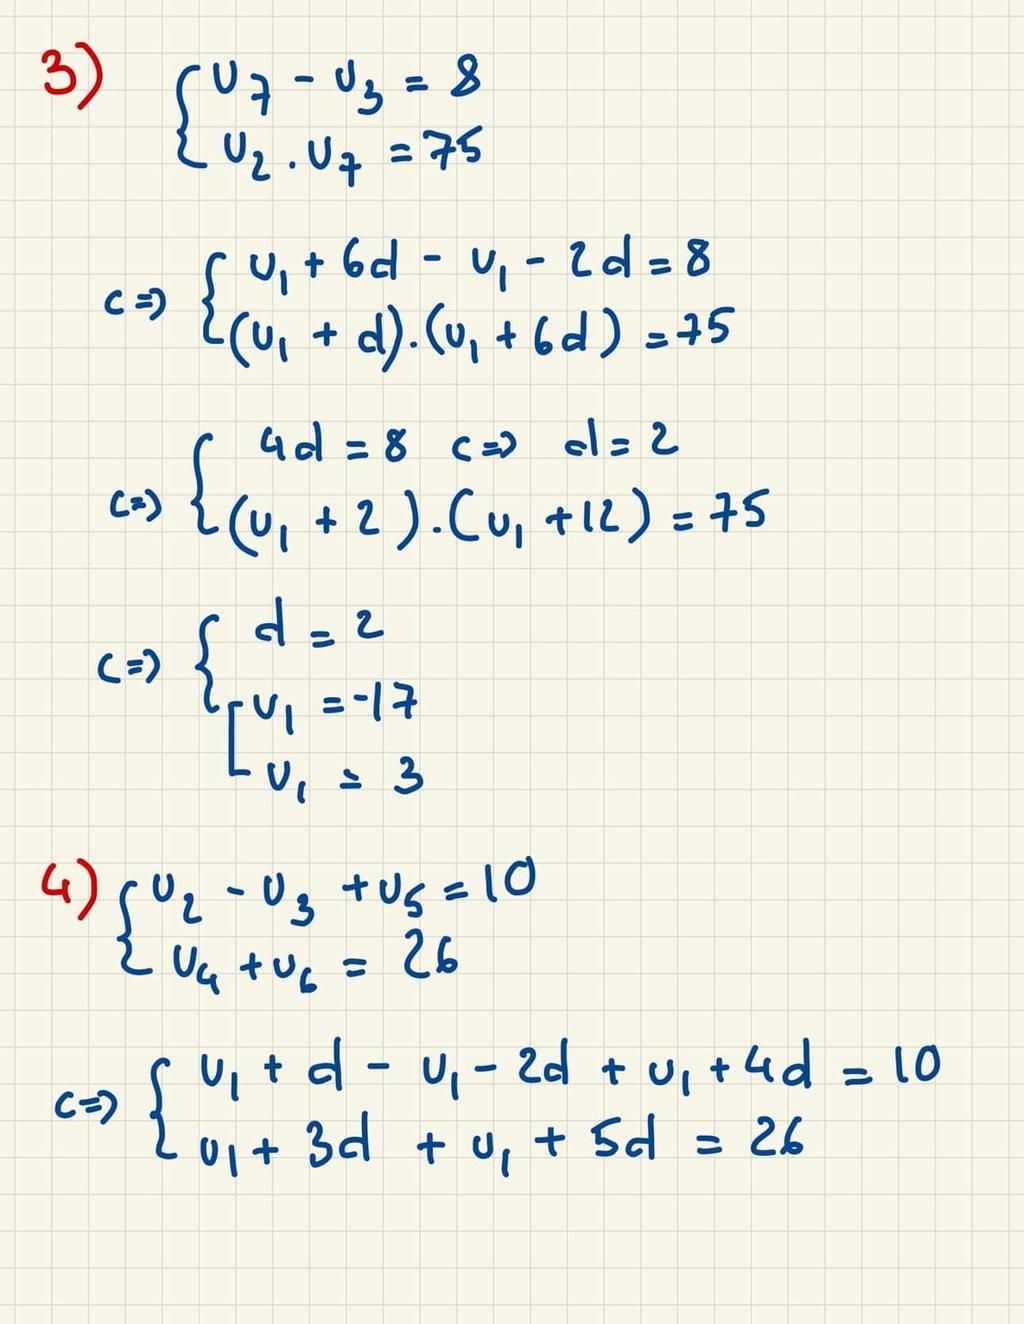 3) { u₇ - u₃ = 8
u₂ . u₇ = 75
<=> { u₁ + 6d - u₁ - 2d = 8
(u₁ + d).(u₁ + 6d) = 75
<=> { 4d = 8 <=> d = 2
(u₁ + 2).(u₁ + 12) = 75
<=> { d = 2
[ u₁ = -17
u₁ = 3
4) { u₂ - u₃ + u₅ = 10
u₄ + u₆ = 26
<=> { u₁ + d - u₁ - 2d + u₁ + 4d = 10
u₁ + 3d + u₁ + 5d = 26